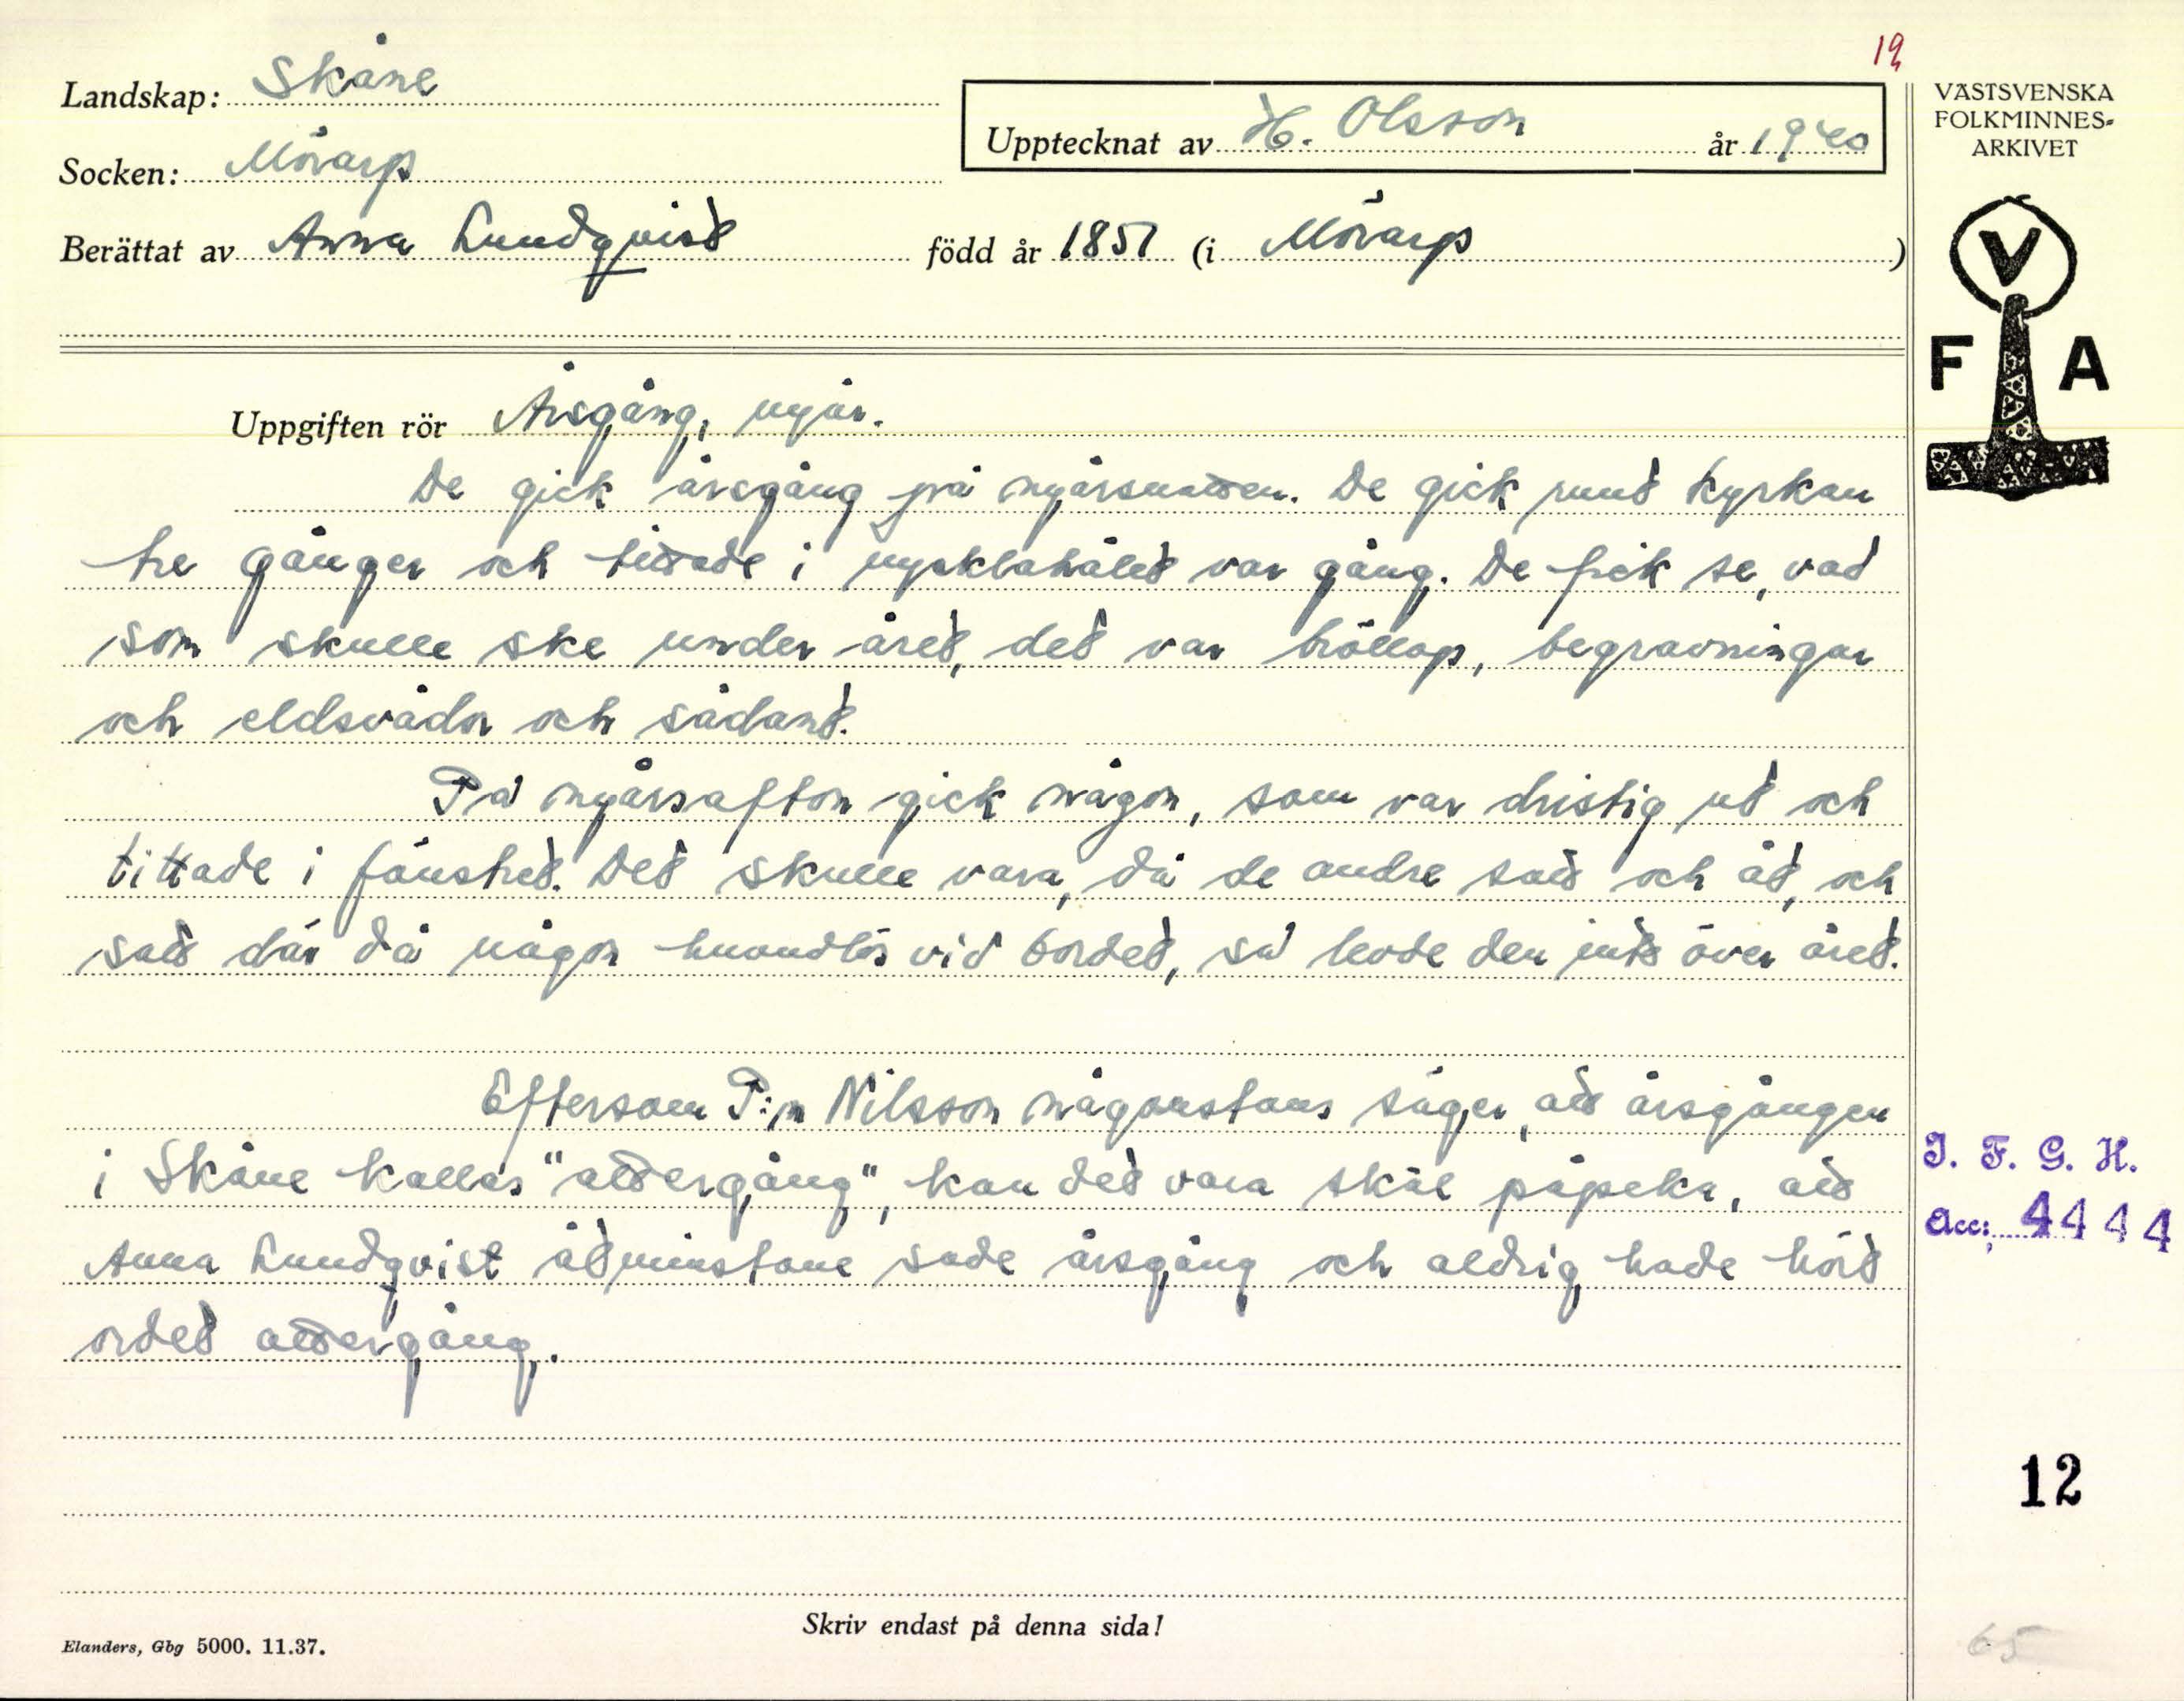 19
Landskap: Skåne
Upptecknat av H. Olsson år 1940
Socken: Mörarp
Berättat av Anna Lundqvist född år 1851 (i Mörarp)
VÄSTSVENSKA
FOLKMINNES-
ARKIVET
V
F A
Uppgiften rör Årsgång, nyår.
De gick årsgång på nyårsnatten. De gick runt kyrkan
tre gånger och tittade i nycklahålet var gång. De fick se, vad
som skulle ske under året, det var bröllop, begravningar
och eldsvådor och sådant.
På nyårsafton gick någon, som var dristig ut och
tittade i fönstret. Det skulle vara, då de andre satt och åt, och
satt där då någon huvudlös vid bordet, så levde den inte över året.
Eftersom P:n Nilsson någonstans säger, att årsgången
i Skåne kallas "attergång", kan det vara skäl påpeka, att
Anna Lundqvist åtminstone sade årsgång och aldrig hade hört
ordet attergång.
I. F. G. H.
Acc: 4444
12
65
Skriv endast på denna sida!
Elanders, Gbg 5000. 11.37.